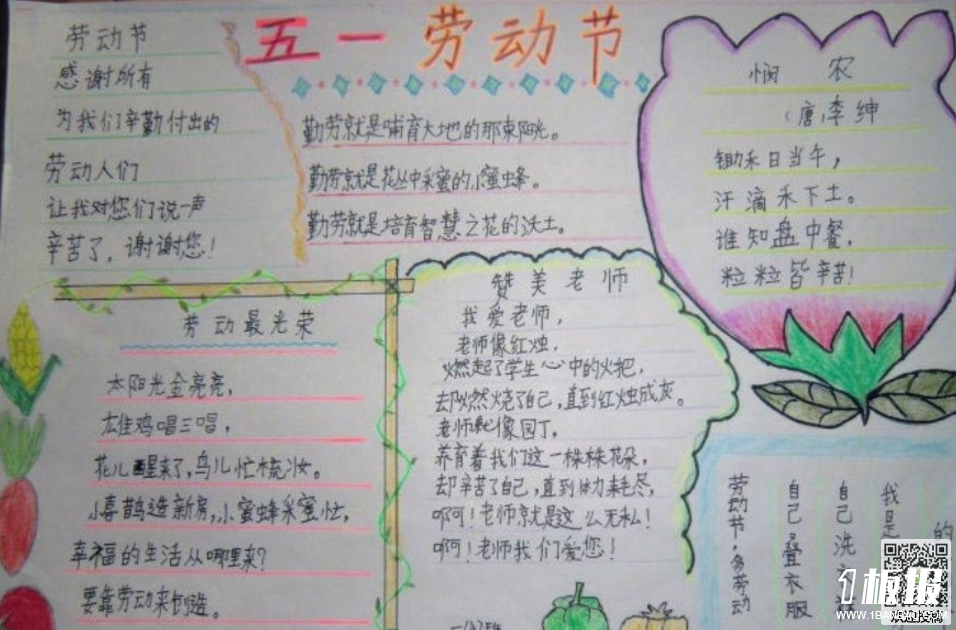 五一劳动节
劳动节
感谢所有
为我们辛勤付出的
劳动人们
让我对您们说一声
辛苦了，谢谢您！
勤劳就是哺育大地的那束阳光。
勤劳就是花丛中采蜜的小蜜蜂。
勤劳就是培育智慧之花的沃土。
悯农
（唐）李绅
锄禾日当午，
汗滴禾下土。
谁知盘中餐，
粒粒皆辛苦！
劳动最光荣
太阳光金亮亮，
雄鸡唱三唱，
花儿醒来了，鸟儿忙梳妆。
小喜鹊造新房，小蜜蜂采蜜忙，
幸福的生活从哪里来？
要靠劳动来创造。
赞美老师
我爱老师，
老师像红烛，
燃起了学生心中的火把，
却燃烧了自己，直到红烛成灰。
老师就像园丁，
养育着我们这一株株花朵，
却辛苦了自己，直到体力耗尽，
啊！老师就是这么无私！
啊！老师我们爱您！
劳动节，多劳动
自己叠衣服
自己洗
我是
的
1板报
WWW.1BANBAO.COM